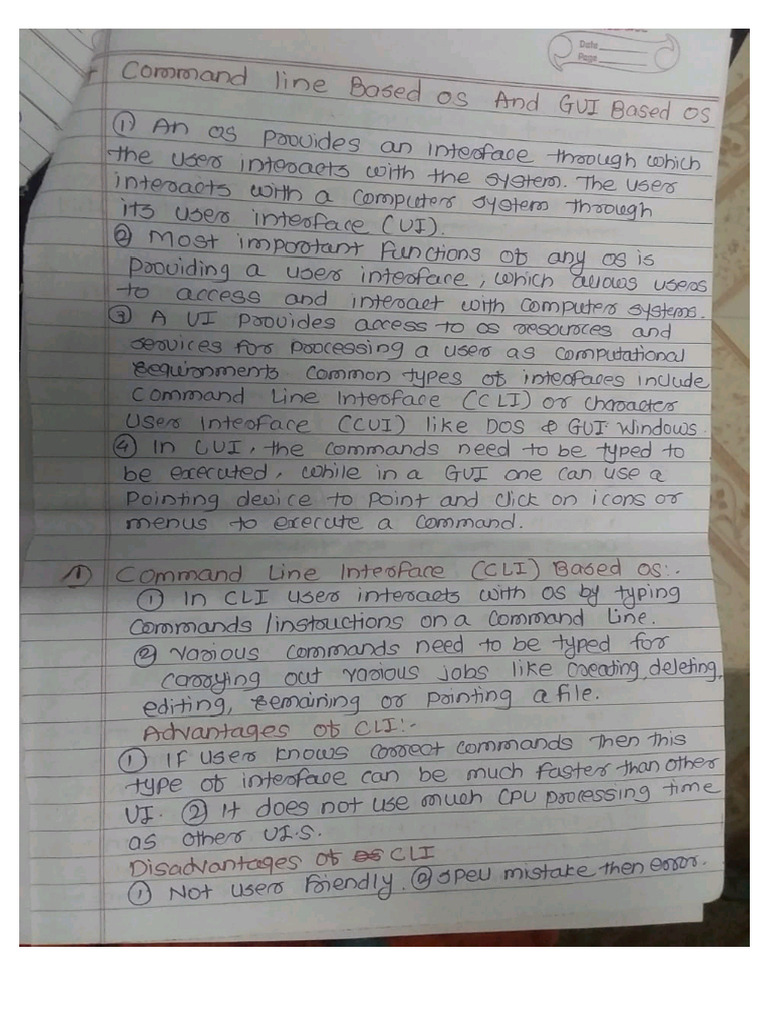 Date
Page
+ Command line Based OS And GUI Based OS
① An OS Provides an interface through which
the user interacts with the system. The user
interacts with a computer system through
its user interface (UI).
② Most important Functions of any OS is
providing a user interface, which allows users
to access and interact with computer systems.
③ A UI Provides access to OS resources and
services for processing a user as computational
requirements common types of interfaces include
Command Line Interface (CLI) or character
User Interface (CUI) like DOS & GUI Windows.
④ In CUI, the commands need to be typed to
be executed, while in a GUI one can use a
Pointing device to Point and click on icons or
menus to execute a command.
① Command Line Interface (CLI) Based OS:-
① In CLI user interacts with OS by typing
commands/instructions on a command Line.
② various commands need to be typed for
carrying out various jobs like creating, deleting,
editing, remaining or printing a file.
Advantages of CLI:-
① If user knows correct commands then this
type of interface can be much faster than other
UI. ② It does not use much CPU processing time
as other UI.S.
Disadvantages of CLI
① Not user friendly. ② spell mistake then error.